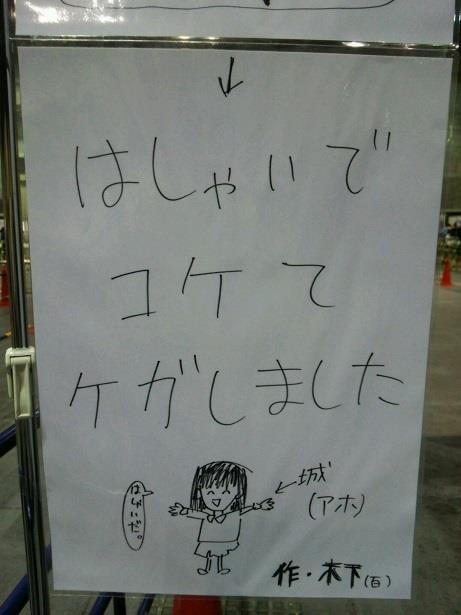 ↓
はしゃいで
コケて
ケガしました
城
(アホ)
はしゃいだ。
作・木下(百)